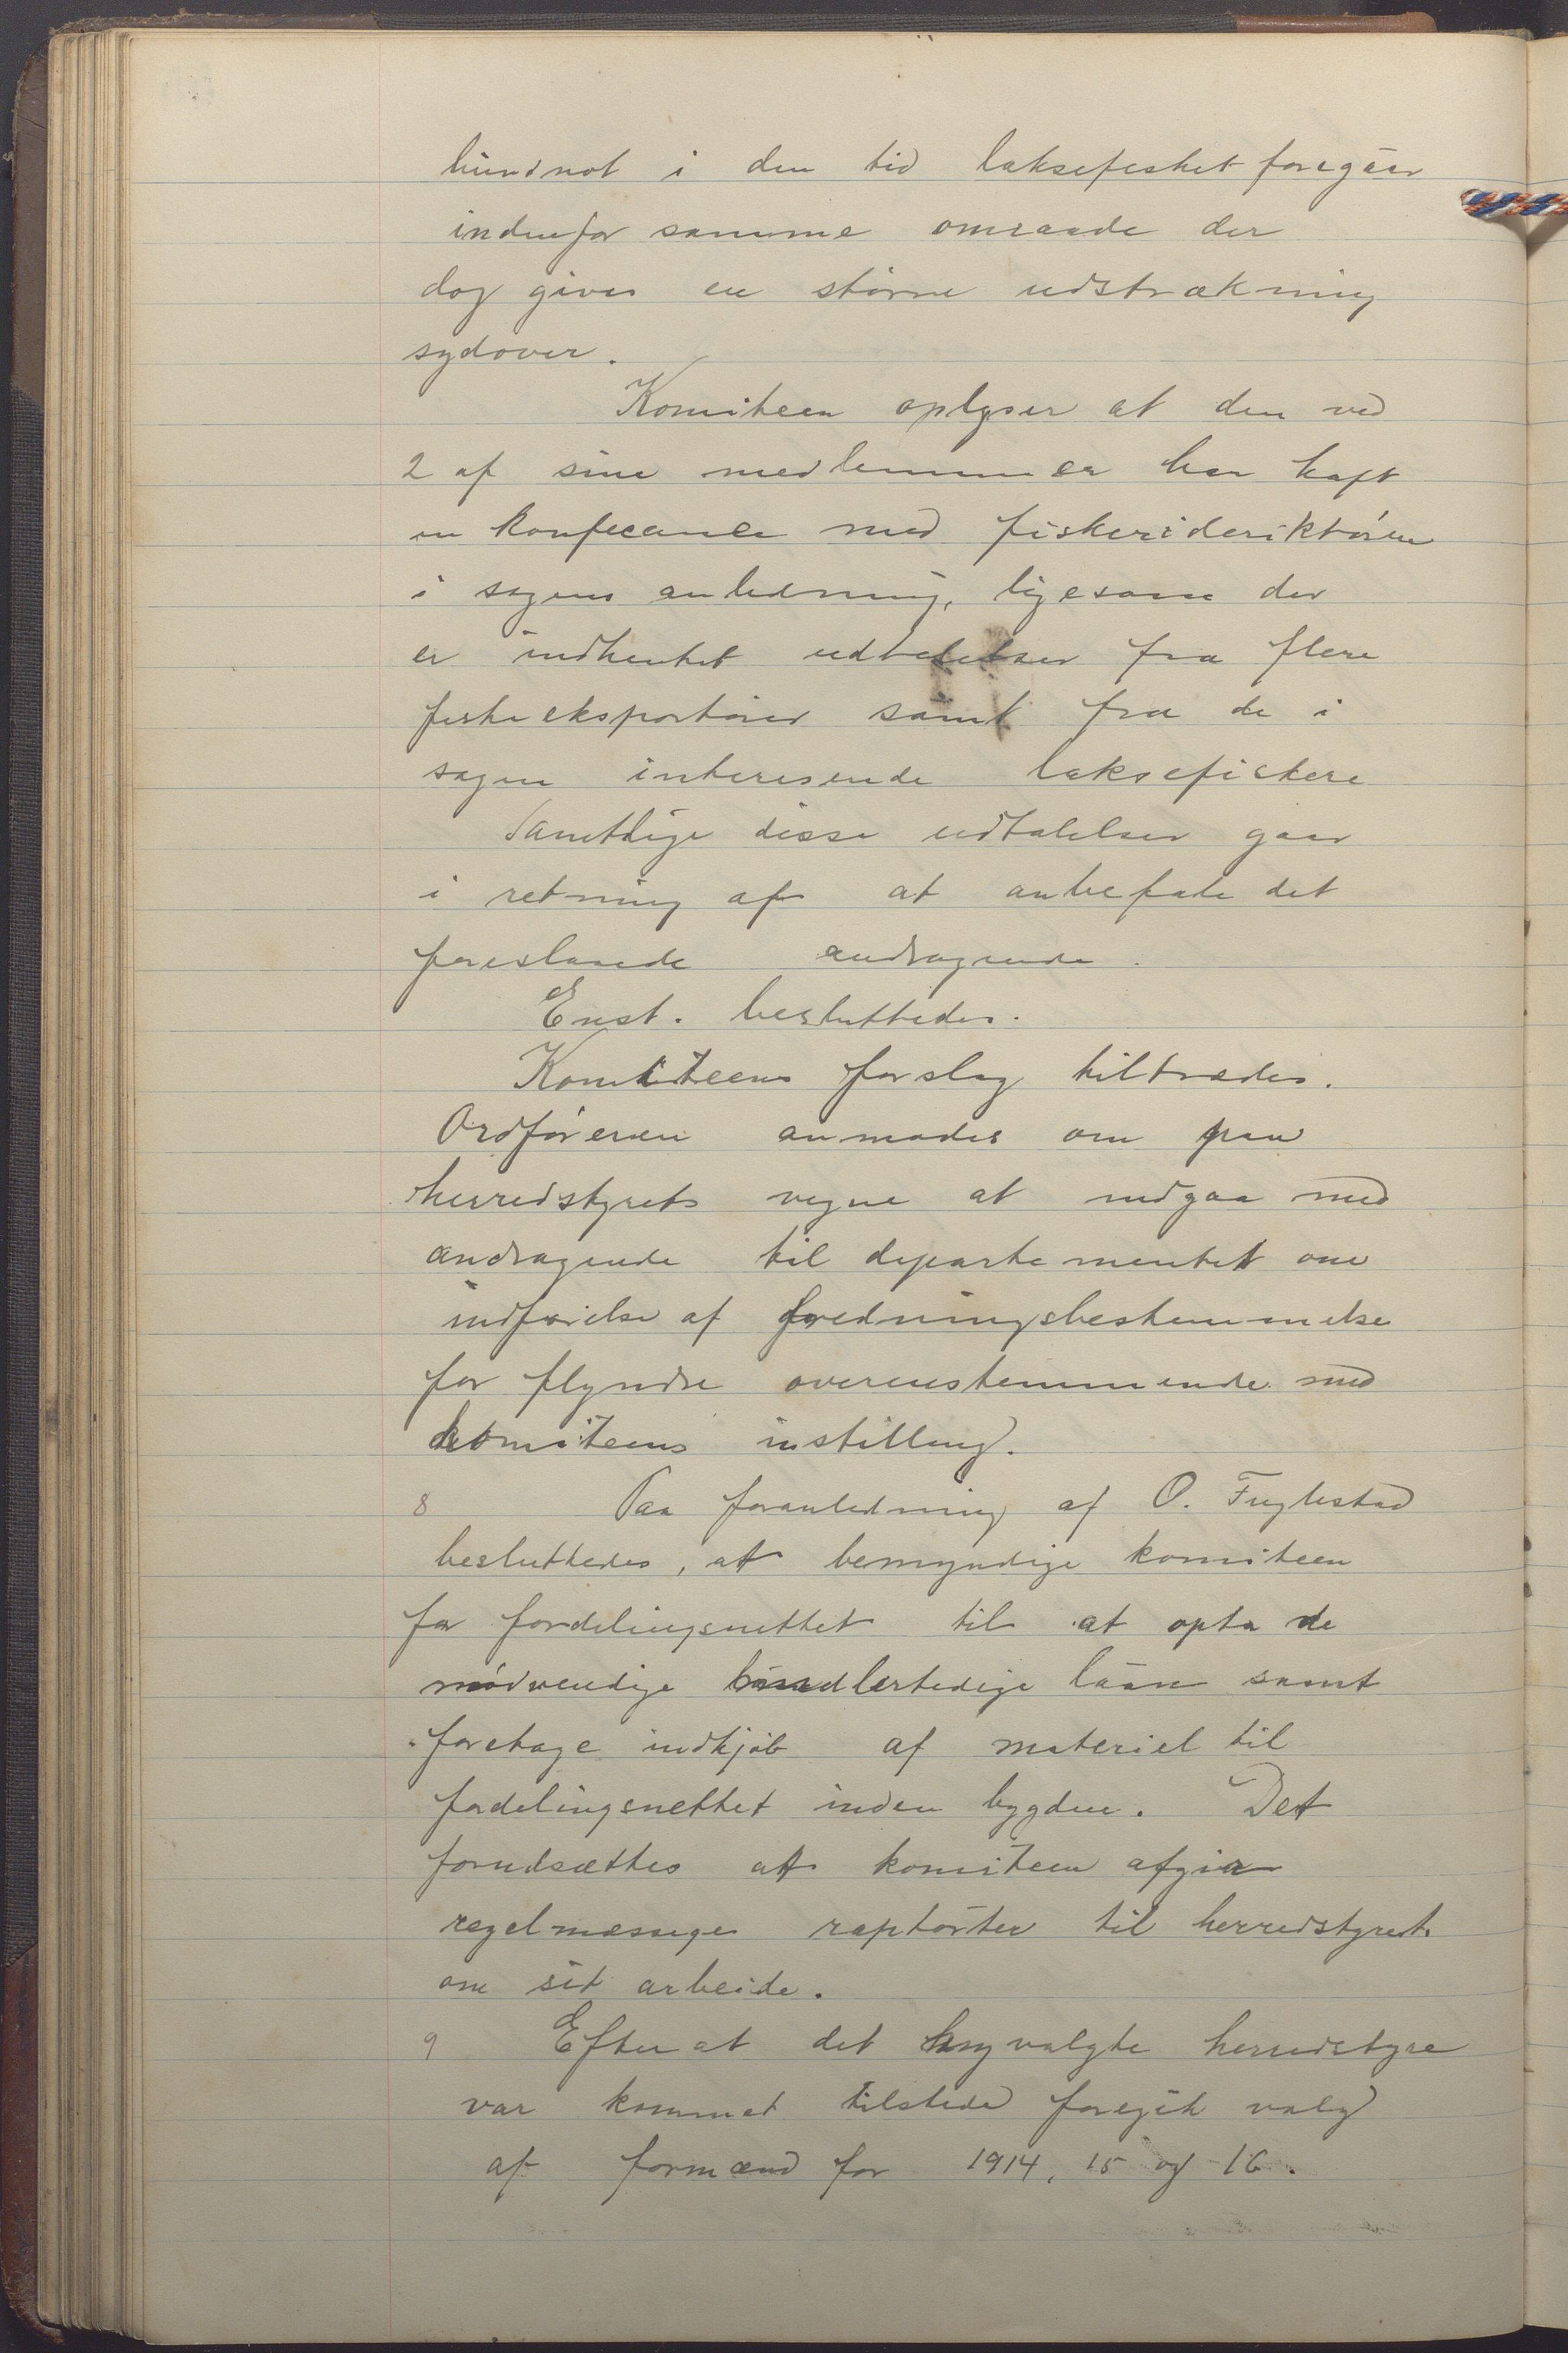 bundnot i den tid laksefisket foregaar
indenfor samme omraade der
dog gives en större udstrækning
sydover.
Komiteen oplyser at den ved
2 af sine medlemmer har haft
en konferance med fiskerideriktören
i sagens anledning, ligesom der
er indhentet udtalelser fra flere
fiskeeksportörer samt fra de i
sagen interesende laksefiskere
Samtlige disse udtalelser gaar
i retning af at anbefale det
foreslaaede andragende.
Enst. besluttedes.
Komiteens forslag tiltrædes.
Ordföreren anmodes om paa
herredstyrets vegne at indgaa med
andragende til departementet om
indförelse af fredningsbestemmelse
for flyndre overensstemmende med
komiteens instilling.
8 Paa foranledning af O. Fuglestad
besluttedes, at bemyndige komiteen
for fordelingsnettet til at opta de
nödvendige midlertidige laan samt
foretage indkjöb af materiel til
fordelingsnettet inden bygden. Det
forudsættes at komiteen afgir
regelmæssige raptörter til herredstyret
om sit arbeide.
9 Efter at det nyvalgte herredstyre
var kommet tilstede foregik valg
af formænd for 1914, 15 og 16.